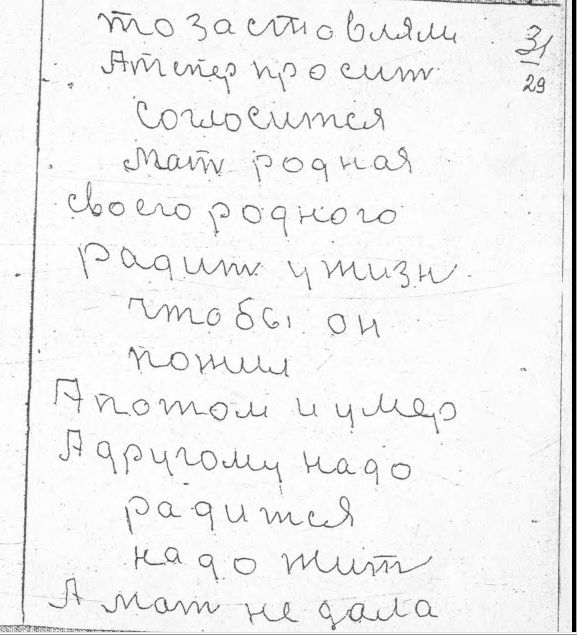 то застовляли
31
А тепер просит
29
согласится
мат родная
своего родного
радит у жизн
чтобы он
пожил
А потом и умер
А другому надо
радится
надо жит
А мат не дала